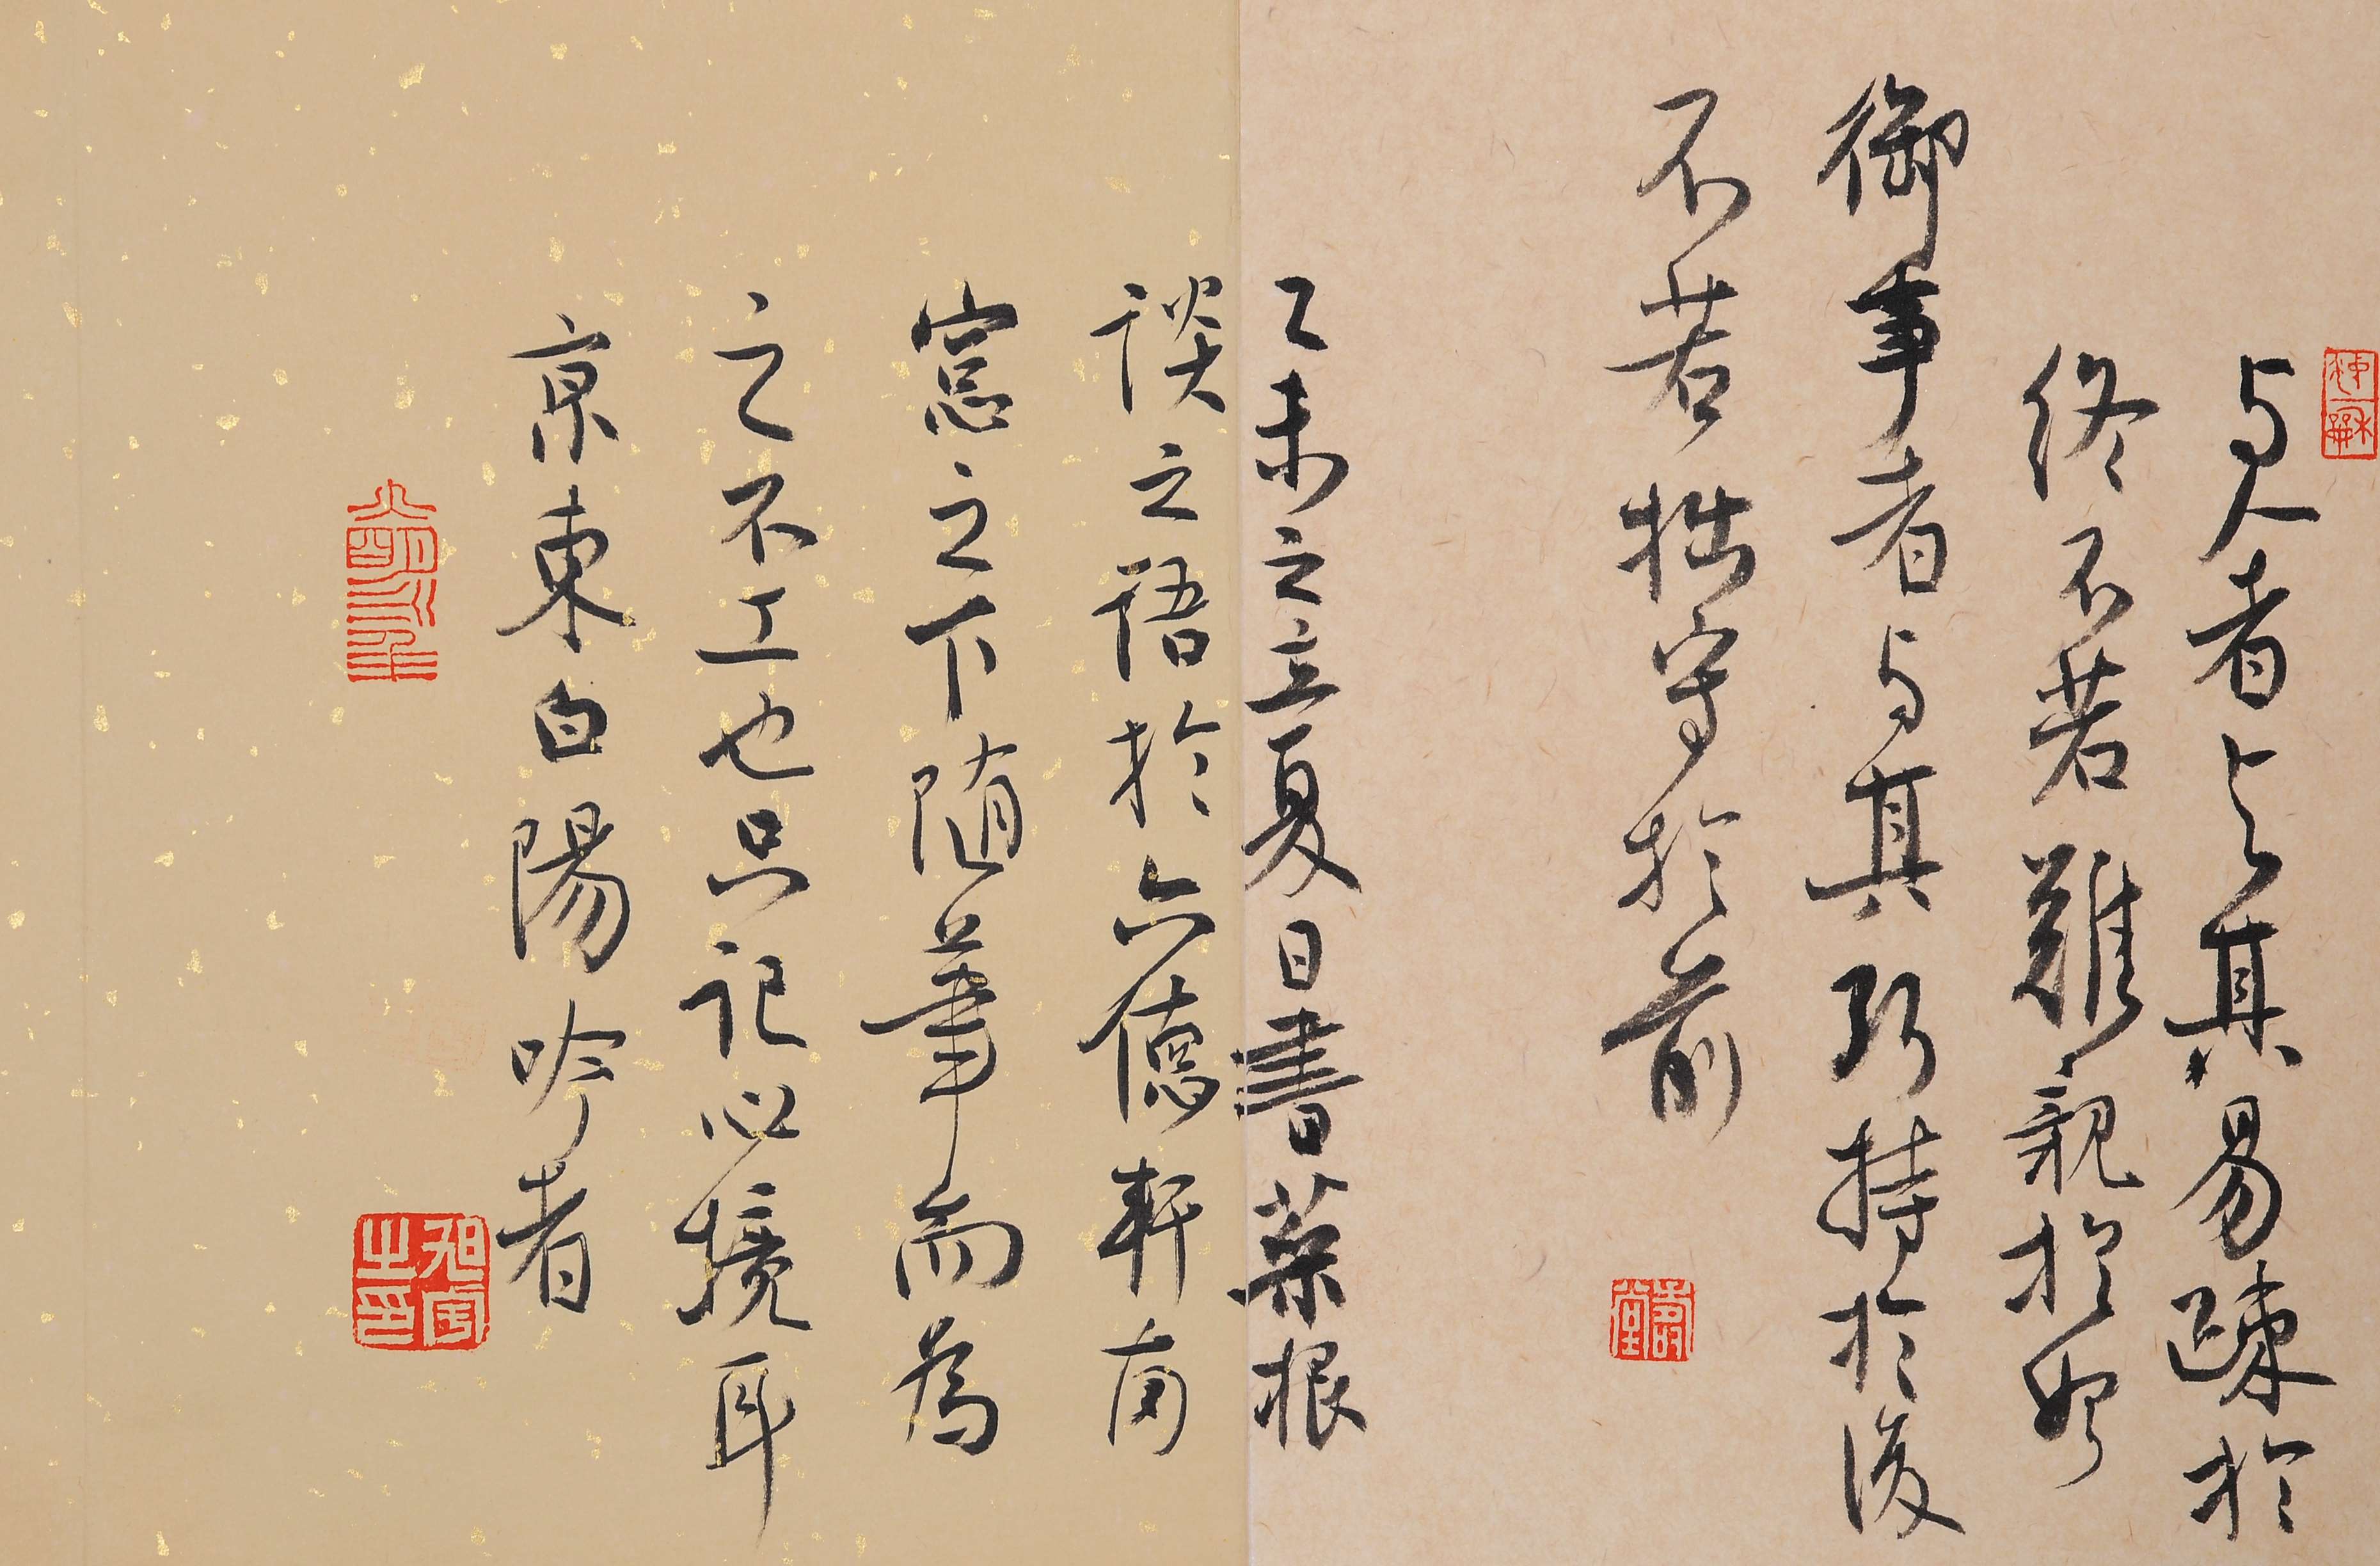 与人者与其易疎於
终不若難親於始
御事者与其巧持於後
不若拙守於前
乙未之立夏日書菜根
談之語於六德軒南
窓之下随筆而為
之不工也只記心境耳
京東白陽吟者